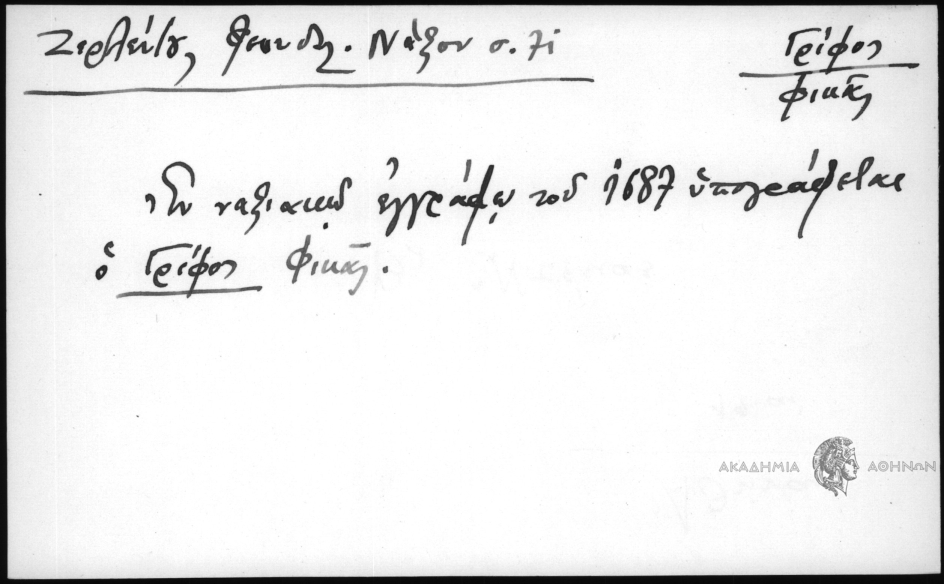 Ζερλέντης Φεουδαλ. Νάξου σ. 71
Γρίφος
Φικᾶς
Ἐν ναξιακῷ ἐγγράφῳ τοῦ 1687 ὑπογράφεται
ὁ Γρίφος Φικᾶς.
ΑΚΑΔΗΜΙΑ ΑΘΗΝΩΝ